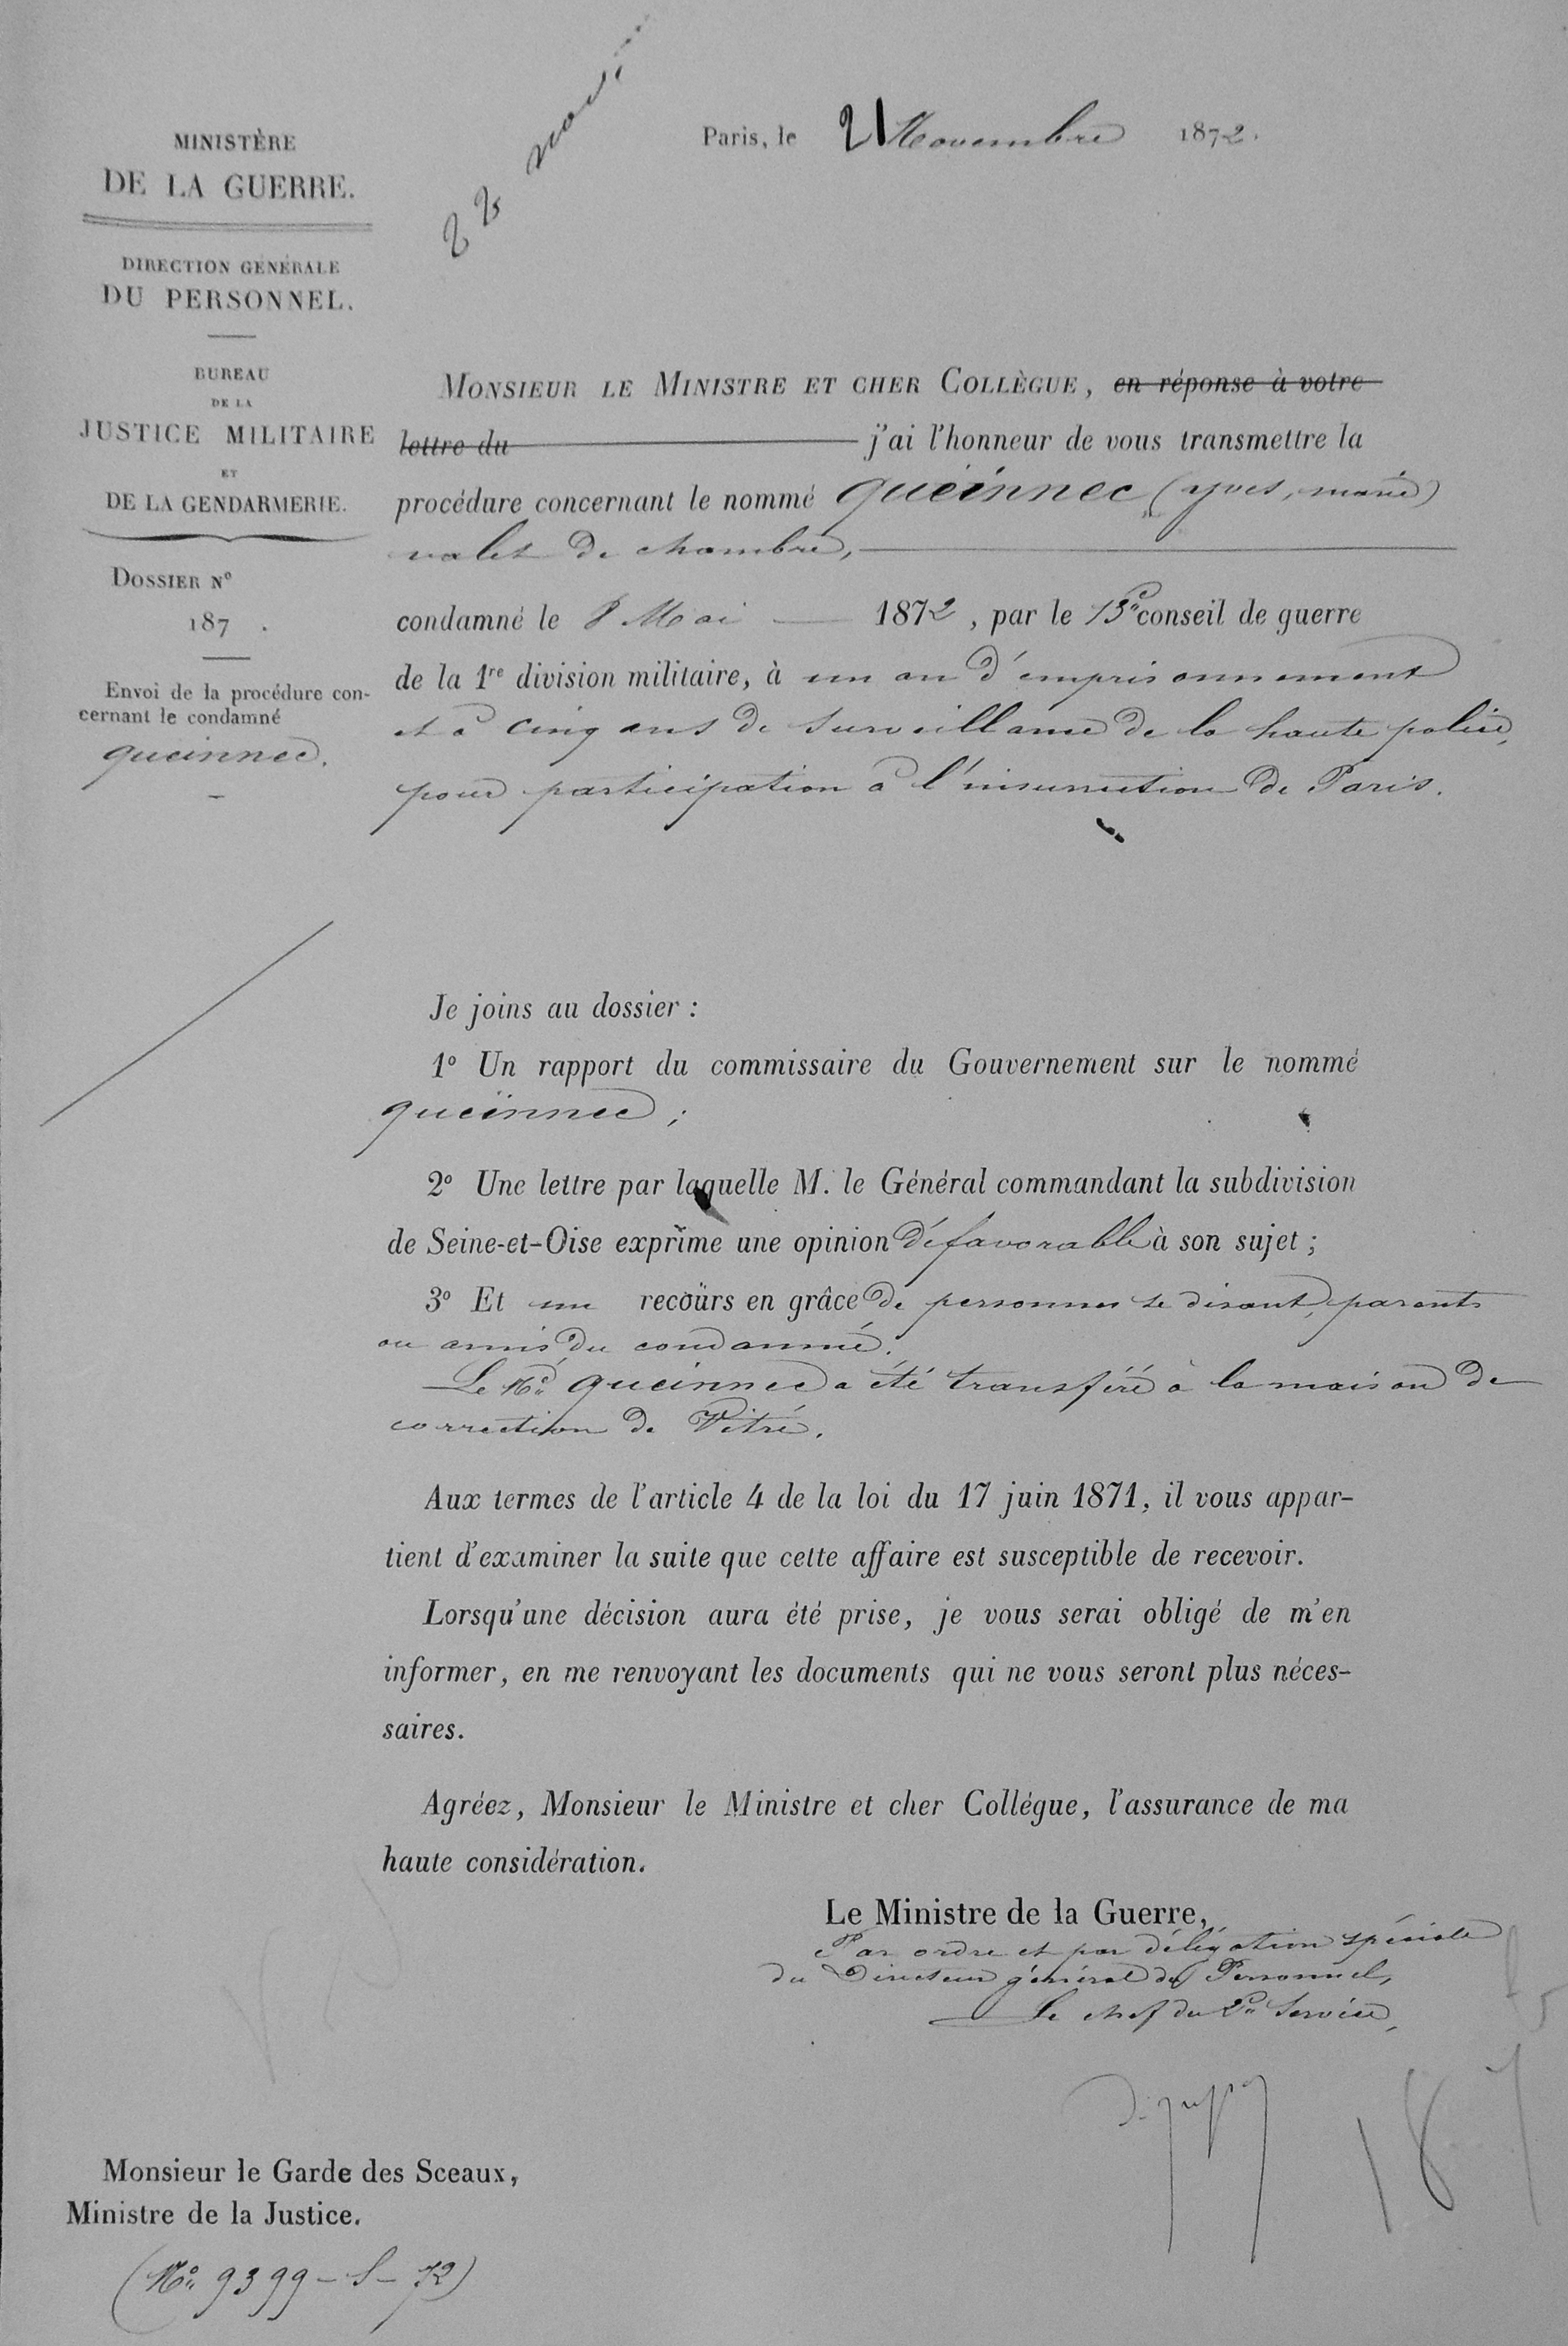 22 nov.
Paris, le 21 Novembre 1872.
MINISTÈRE
DE LA GUERRE.
DIRECTION GÉNÉRALE
DU PERSONNEL.
BUREAU
DE LA
JUSTICE MILITAIRE
ET
DE LA GENDARMERIE.
DOSSIER N°
187 .
Envoi de la procédure con-
cernant le condamné
queinnec.
MONSIEUR LE MINISTRE ET CHER COLLÈGUE, en réponse à votre
lettre du j'ai l'honneur de vous transmettre la
procédure concernant le nommé queinnec (yves, marie)
valet de chambre,
condamné le 8 Mai 1872, par le 13e conseil de guerre
de la 1re division militaire, à un an d'emprisonnement
et à cinq ans de surveillance de la haute police,
pour participation à l'insurrection de Paris.
Je joins au dossier :
1° Un rapport du commissaire du Gouvernement sur le nommé
queinnec ;
2° Une lettre par laquelle M. le Général commandant la subdivision
de Seine-et-Oise exprime une opinion défavorable à son sujet ;
3° Et un recours en grâce de personnes se disant, parents
ou amis du condamné.
Le Né queinnec a été transféré à la maison de
correction de Vitré.
Aux termes de l'article 4 de la loi du 17 juin 1871, il vous appar-
tient d'examiner la suite que cette affaire est susceptible de recevoir.
Lorsqu'une décision aura été prise, je vous serai obligé de m'en
informer, en me renvoyant les documents qui ne vous seront plus néces-
saires.
Agréez, Monsieur le Ministre et cher Collégue, l'assurance de ma
haute considération.
Le Ministre de la Guerre,
Par ordre et par délégation spéciale
du Directeur général du Personnel,
Le chef du 2e Service,
187
Monsieur le Garde des Sceaux,
Ministre de la Justice.
(No 9399 - S - 72)